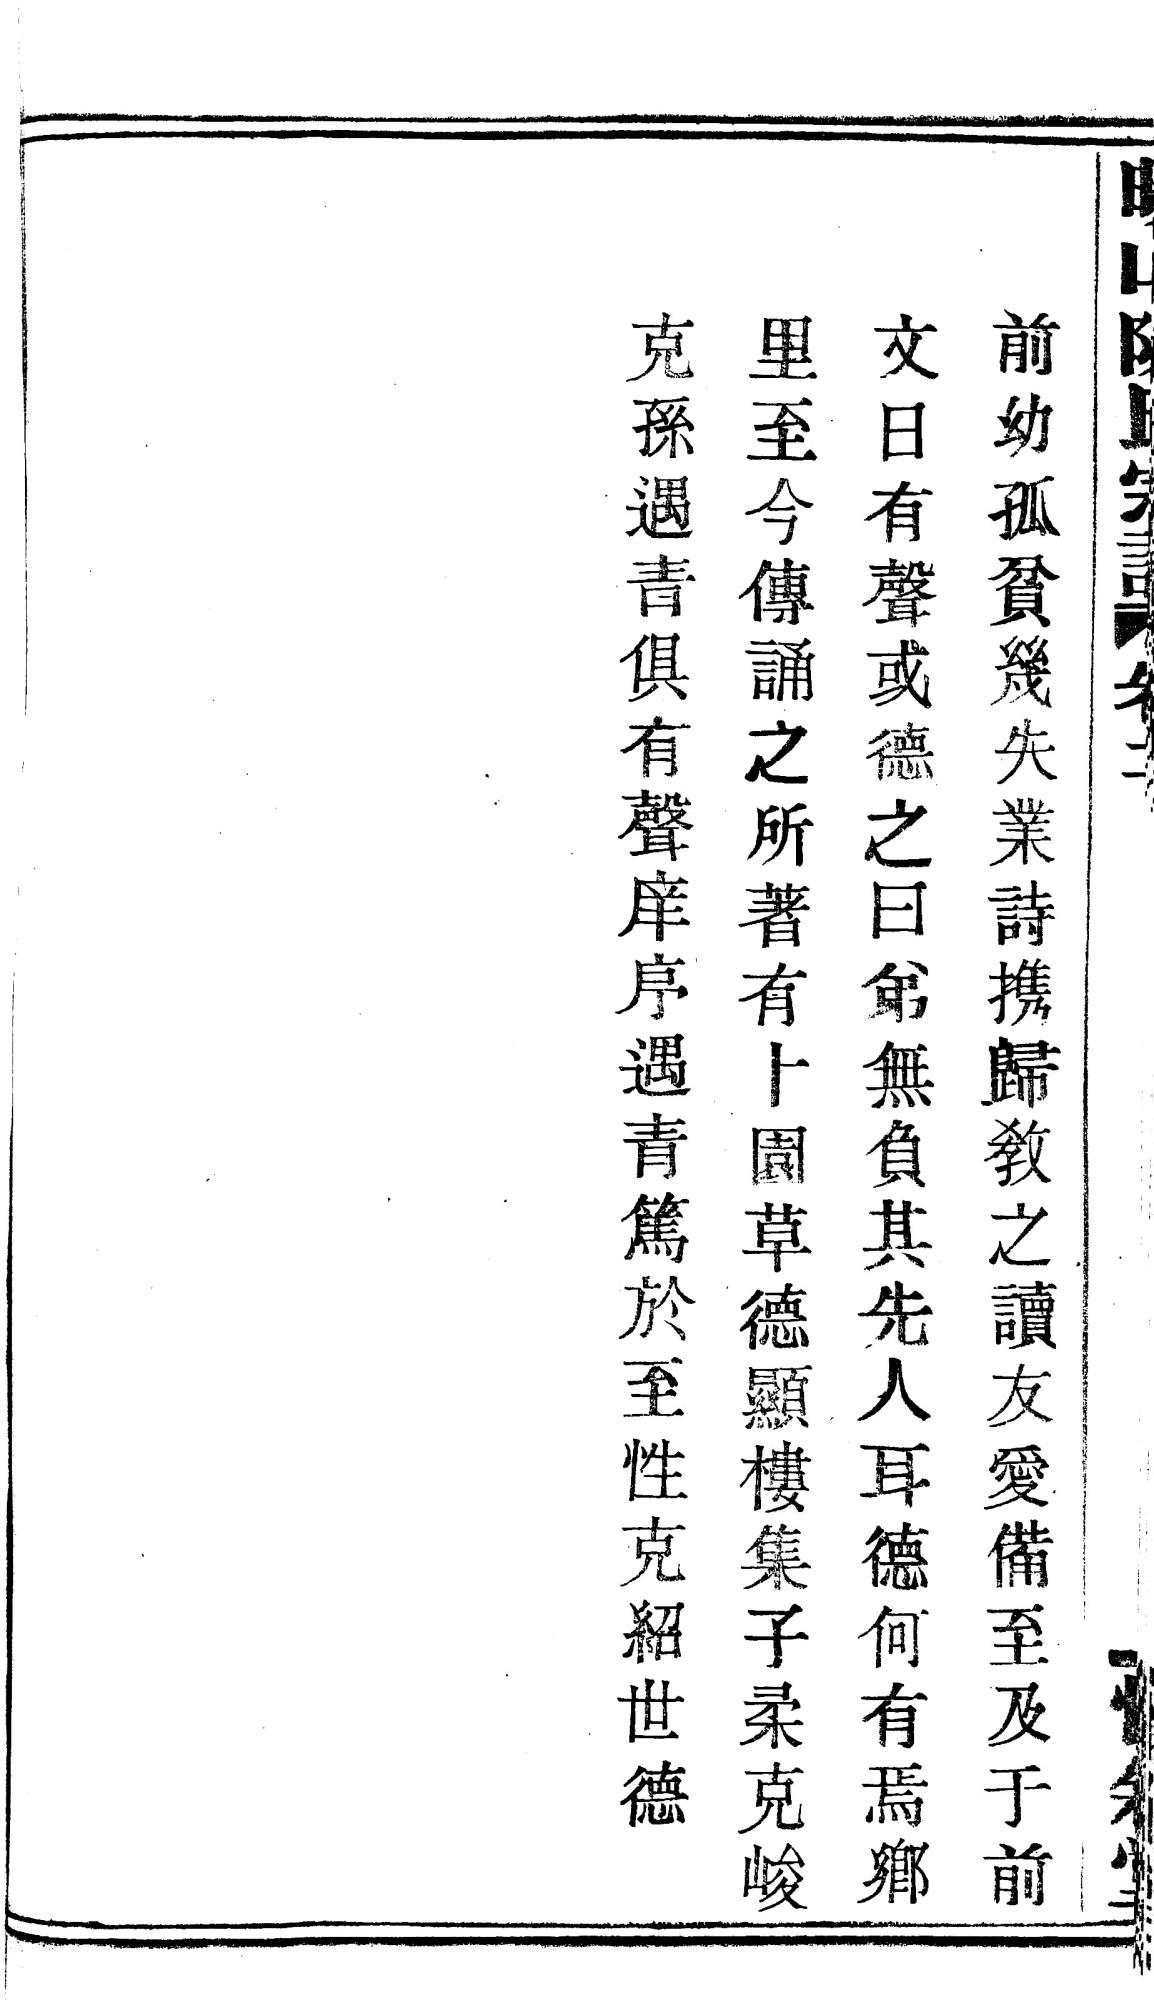 前幼孤貧幾失業詩携歸敎之讀友愛備至及于前
文日有聲或德之曰爾無負其先人耳德何有焉鄉
里至今傳誦之所著有卜園草德顯樓集子柔克峻
克孫遇青俱有聲庠序遇青篤於至性克紹世德